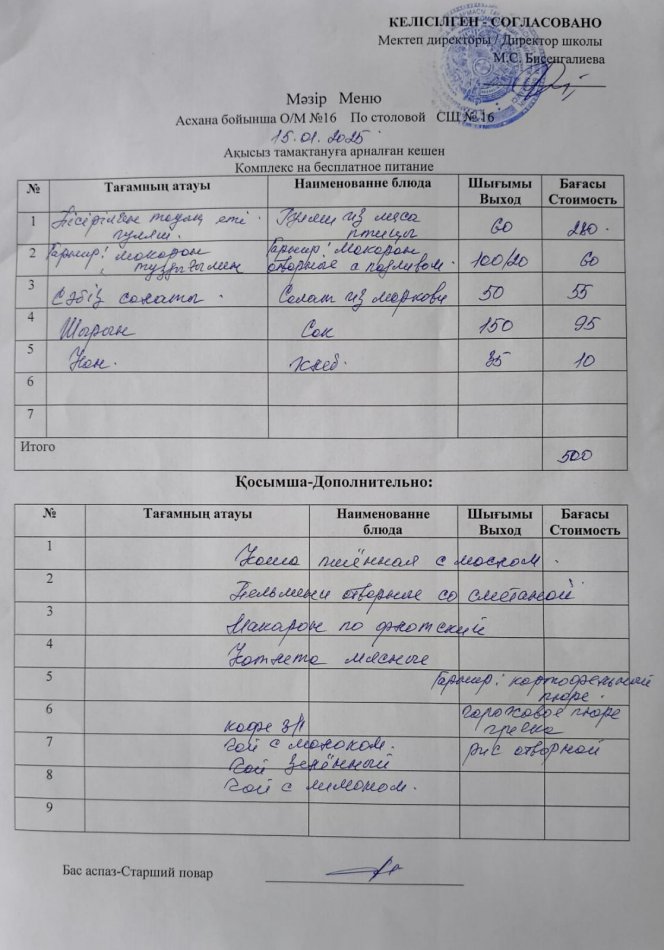 КЕЛІСІЛГЕН - СОГЛАСОВАНО
Мектеп директоры / Директор школы
М.С. Бисенгалиева
Мәзір Меню
Асхана бойынша О/М №16 По столовой СШ № 16
15.01.2025
Ақысыз тамақтануға арналған кешен
Комплекс на бесплатное питание
№ Тағамның атауы Наименование блюда Шығымы Выход Бағасы Стоимость
1 Пісірілген тауық еті гуляш. Гуляш из мяса птицы 60 280.
2 Гарнир: макарон, тұздығымен Гарнир: макарон отворные с подливом. 100/20 60
3 Сәбіз салаты. Салат из моркови 50 55
4 Шырын Сок 150 95
5 Нан. Хлеб. 35 10
6
7
Итого 500
Қосымша-Дополнительно:
№ Тағамның атауы Наименование блюда Шығымы Выход Бағасы Стоимость
1 Каша пшённая с маслом.
2 Пельмени отворные со сметаной
3 Макарон по флотский
4 Котлета мясные
5 Гарнир: картофельный пюре.
6 кофе 3/1 гороховое пюре гречка
7 чай с молоком. рис отворной
чай зелённый
8 чай с лимоном.
9
Бас аспаз-Старший повар